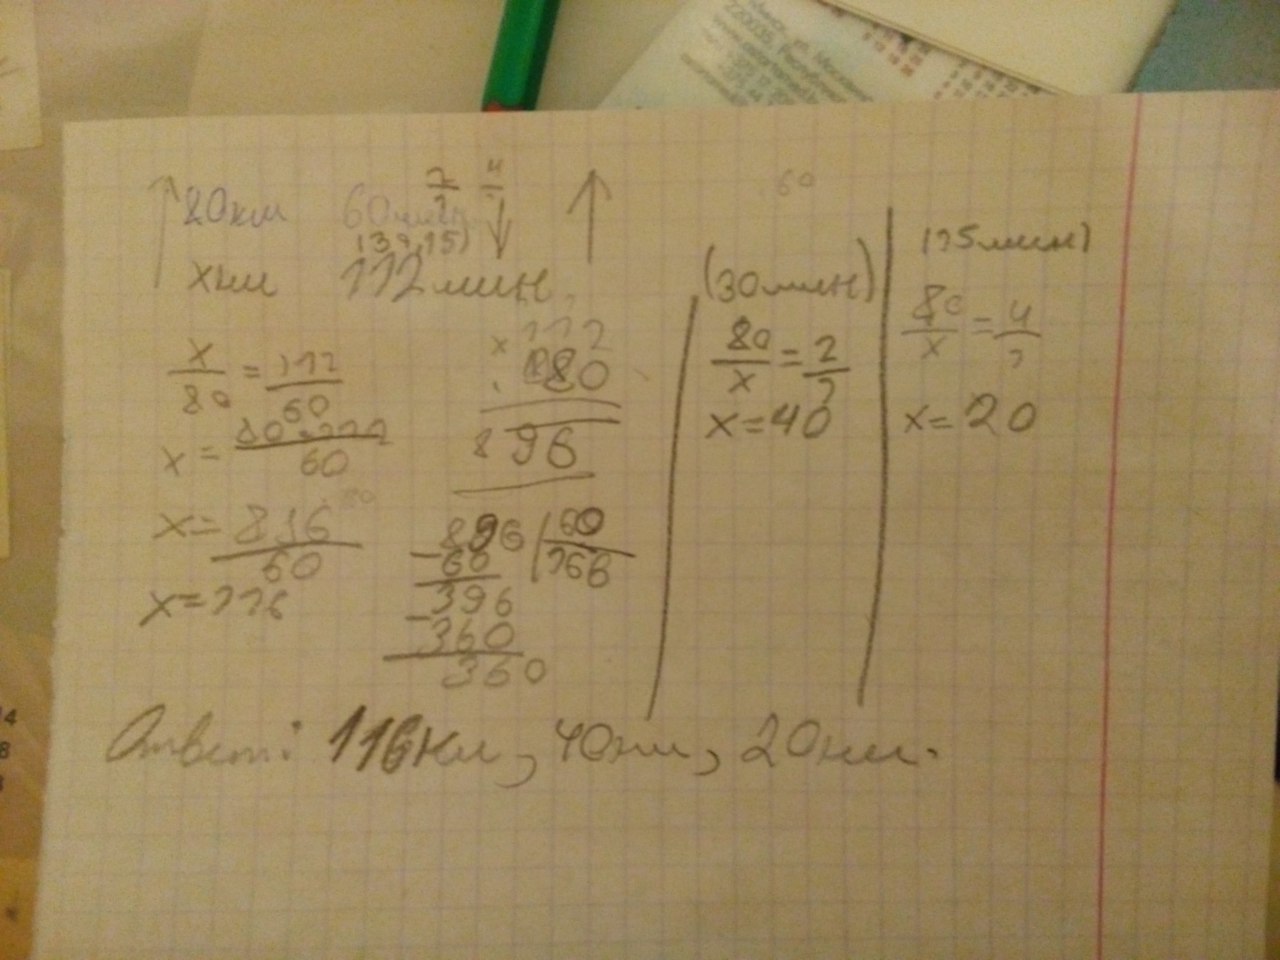 220035, Республика
80км 60мин 2/1 4/1
(30,15)
xкм 112мин.
x/80 = 112/60
x = 80·112/60
x = 896/60
x=116
×112
80
896
896 | 60
-60 | 166
396
-360
360
60
(30мин)
80/x = 2/1
x=40
(15мин)
80/x = 4/1
x=20
Ответ: 116км, 40км, 20км.